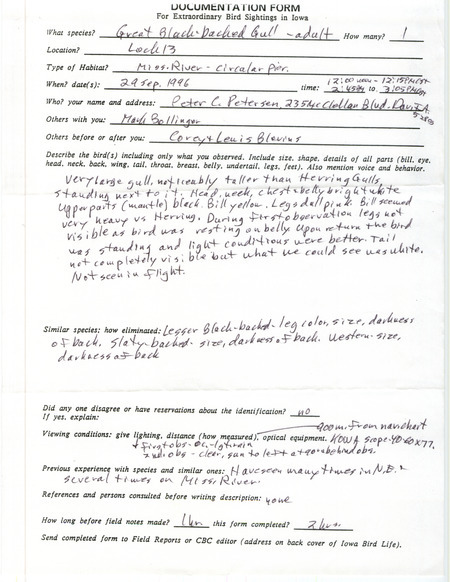 DOCUMENTATION FORM
For Extraordinary Bird Sightings in Iowa
What species? Great Black-backed Gull - adult How many? 1
Location? Lock 13
Type of Habitat? Miss. River - circular pier.
When? date(s): 29 Sep. 1996 time: 12:00 noon - 12:15 PM CST
2:45 PM to 3:05 PM CST
Who? your name and address: Peter C. Petersen 235 McClellan Blvd. Dav. IA
52803
Others with you: Mark Bollinger
Others before or after you: Corey + Lewis Blevins
Describe the bird(s) including only what you observed. Include size, shape, details of all parts (bill, eye,
head, neck, back, wing, tail, throat, breast, belly, undertail, legs, feet). Also mention voice and behavior.
Very large gull, noticeably taller than Herring Gulls
standing next to it. Head, neck, chest + belly bright white
Upper parts (mantle) black Bill yellow. Legs dull pink. Bill seemed
very heavy vs Herring. During first observation legs not
visible as bird was resting on belly Upon return the bird
was standing and light conditions were better. Tail
not completely visible but what we could see was white.
Not seen in flight.
Similar species; how eliminated: Lesser Black-backed - leg color, size, darkness
of back. Slaty-backed - size, darkness of back. Western - size,
darkness of back
Did any one disagree or have reservations about the identification? no
If yes, explain:
900m. from nav. chart
Viewing conditions: give lighting, distance (how measured), optical equipment. KOWA scope 40-60x77.
first obs - oc. - lgt rain
2nd obs - clear, sun to left + 90° behind obs.
Previous experience with species and similar ones: Have seen many times in N.B. +
several times on Miss. River.
References and persons consulted before writing description: none
How long before field notes made? 1 hr this form completed? 2 hrs.
Send completed form to Field Reports or CBC editor (address on back cover of Iowa Bird Life).